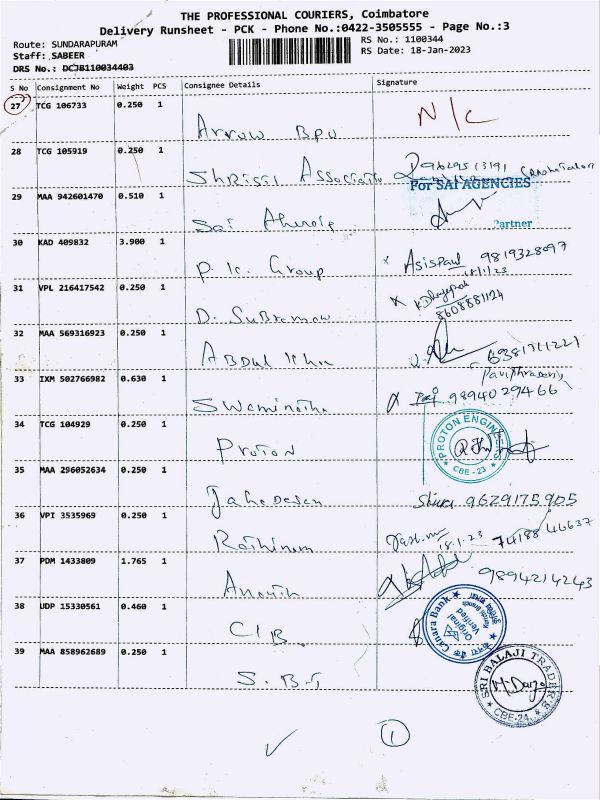 THE PROFESSIONAL COURIERS, Coimbatore
Delivery Runsheet - PCK - Phone No.:0422-3505555 - Page No.:3
Route: SUNDARAPURAM
RS No.: 1100344
Staff: SABEER
RS Date: 18-Jan-2023
DRS No.: DCJB110034403
S No Consignment No Weight PCS Consignee Details Signature
27 TCG 106733 0.250 1
Arrow BPU N/C
28 TCG 105919 0.250 1
Shrissi Associate 9629513191
For SAI AGENCIES
29 MAA 942601470 0.510 1
Sai
Partner
30 KAD 409832 3.900 1
P.K. Group Asispaul 9819328097
18/1/23
31 VPL 216417542 0.250 1
D. Subramaw 8608881124
32 MAA 569316923 0.250 1
Abdul 6381711221
33 IXM 502766982 0.630 1
Swaminatha 9894029466
34 TCG 104929 0.250 1
Proton
PROTON ENGINEERS
CBE - 23
35 MAA 296052634 0.250 1
Shiva 9629175905
36 VPI 3535969 0.250 1
Rathinam 18.1.23 7418846637
37 PDM 1433809 1.765 1
Ananth 9894214243
38 UDP 15330561 0.460 1
C.I.B.
Canara Bank
Original Verified
39 MAA 858962689 0.250 1
S.B.T
SRI BALAJI TRADERS
CBE-24
1